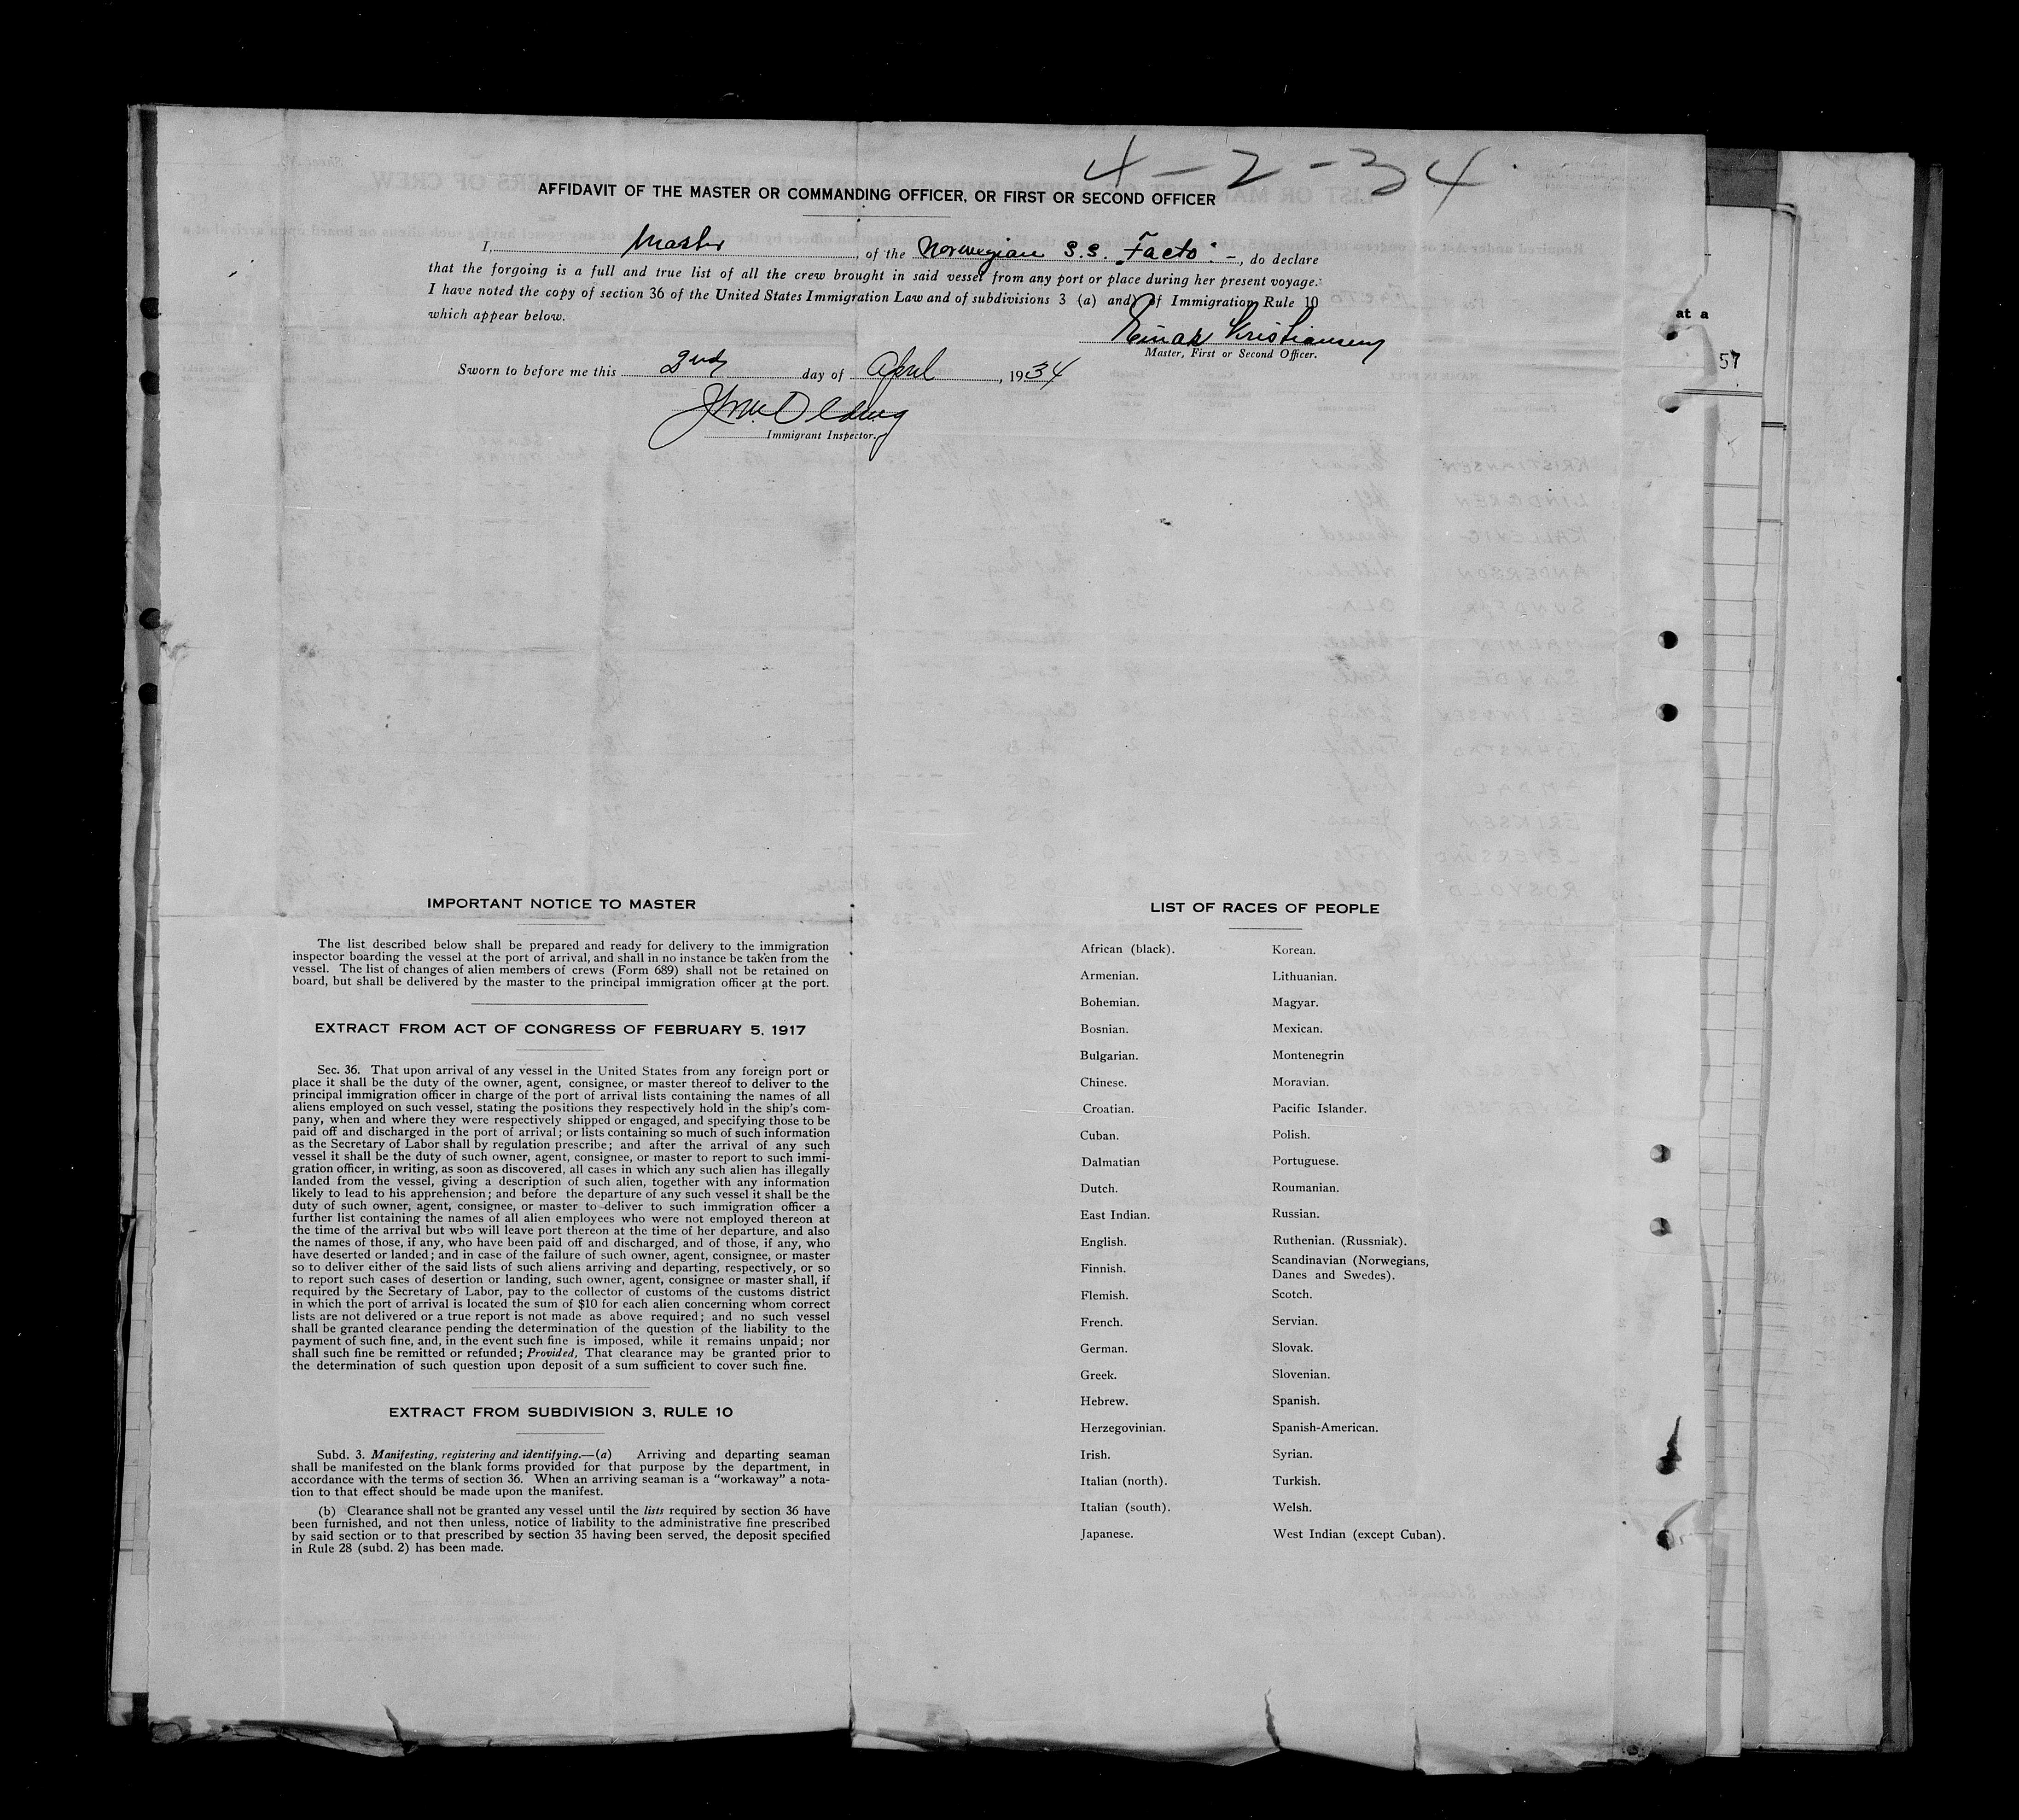 4-2-34
AFFIDAVIT OF THE MASTER OR COMMANDING OFFICER, OR FIRST OR SECOND OFFICER
I, Master, of the Norwegian S.S. Facto, do declare
that the forgoing is a full and true list of all the crew brought in said vessel from any port or place during her present voyage.
I have noted the copy of section 36 of the United States Immigration Law and of subdivisions 3 (a) and of Immigration Rule 10
which appear below.
at a
Einar Kristiansen
Master, First or Second Officer.
57
Sworn to before me this 2nd day of April, 1934
Immigrant Inspector.
IMPORTANT NOTICE TO MASTER
The list described below shall be prepared and ready for delivery to the immigration
inspector boarding the vessel at the port of arrival, and shall in no instance be taken from the
vessel. The list of changes of alien members of crews (Form 689) shall not be retained on
board, but shall be delivered by the master to the principal immigration officer at the port.
EXTRACT FROM ACT OF CONGRESS OF FEBRUARY 5, 1917
Sec. 36. That upon arrival of any vessel in the United States from any foreign port or
place it shall be the duty of the owner, agent, consignee, or master thereof to deliver to the
principal immigration officer in charge of the port of arrival lists containing the names of all
aliens employed on such vessel, stating the positions they respectively hold in the ship's com-
pany, when and where they were respectively shipped or engaged, and specifying those to be
paid off and discharged in the port of arrival; or lists containing so much of such information
as the Secretary of Labor shall by regulation prescribe; and after the arrival of any such
vessel it shall be the duty of such owner, agent, consignee, or master to report to such immi-
gration officer, in writing, as soon as discovered, all cases in which any such alien has illegally
landed from the vessel, giving a description of such alien, together with any information
likely to lead to his apprehension; and before the departure of any such vessel it shall be the
duty of such owner, agent, consignee, or master to deliver to such immigration officer a
further list containing the names of all alien employees who were not employed thereon at
the time of the arrival but who will leave port thereon at the time of her departure, and also
the names of those, if any, who have been paid off and discharged, and of those, if any, who
have deserted or landed; and in case of the failure of such owner, agent, consignee, or master
so to deliver either of the said lists of such aliens arriving and departing, respectively, or so
to report such cases of desertion or landing, such owner, agent, consignee or master shall, if
required by the Secretary of Labor, pay to the collector of customs of the customs district
in which the port of arrival is located the sum of $10 for each alien concerning whom correct
lists are not delivered or a true report is not made as above required; and no such vessel
shall be granted clearance pending the determination of the question of the liability to the
payment of such fine, and, in the event such fine is imposed, while it remains unpaid; nor
shall such fine be remitted or refunded; Provided, That clearance may be granted prior to
the determination of such question upon deposit of a sum sufficient to cover such fine.
EXTRACT FROM SUBDIVISION 3, RULE 10
Subd. 3. Manifesting, registering and identifying.—(a) Arriving and departing seaman
shall be manifested on the blank forms provided for that purpose by the department, in
accordance with the terms of section 36. When an arriving seaman is a "workaway" a nota-
tion to that effect should be made upon the manifest.
(b) Clearance shall not be granted any vessel until the lists required by section 36 have
been furnished, and not then unless, notice of liability to the administrative fine prescribed
by said section or to that prescribed by section 35 having been served, the deposit specified
in Rule 28 (subd. 2) has been made.
LIST OF RACES OF PEOPLE
African (black).
Armenian.
Bohemian.
Bosnian.
Bulgarian.
Chinese.
Croatian.
Cuban.
Dalmatian
Dutch.
East Indian.
English.
Finnish.
Flemish.
French.
German.
Greek.
Hebrew.
Herzegovinian.
Irish.
Italian (north).
Italian (south).
Japanese.
Korean.
Lithuanian.
Magyar.
Mexican.
Montenegrin
Moravian.
Pacific Islander.
Polish.
Portuguese.
Roumanian.
Russian.
Ruthenian. (Russniak).
Scandinavian (Norwegians,
Danes and Swedes).
Scotch.
Servian.
Slovak.
Slovenian.
Spanish.
Spanish-American.
Syrian.
Turkish.
Welsh.
West Indian (except Cuban).